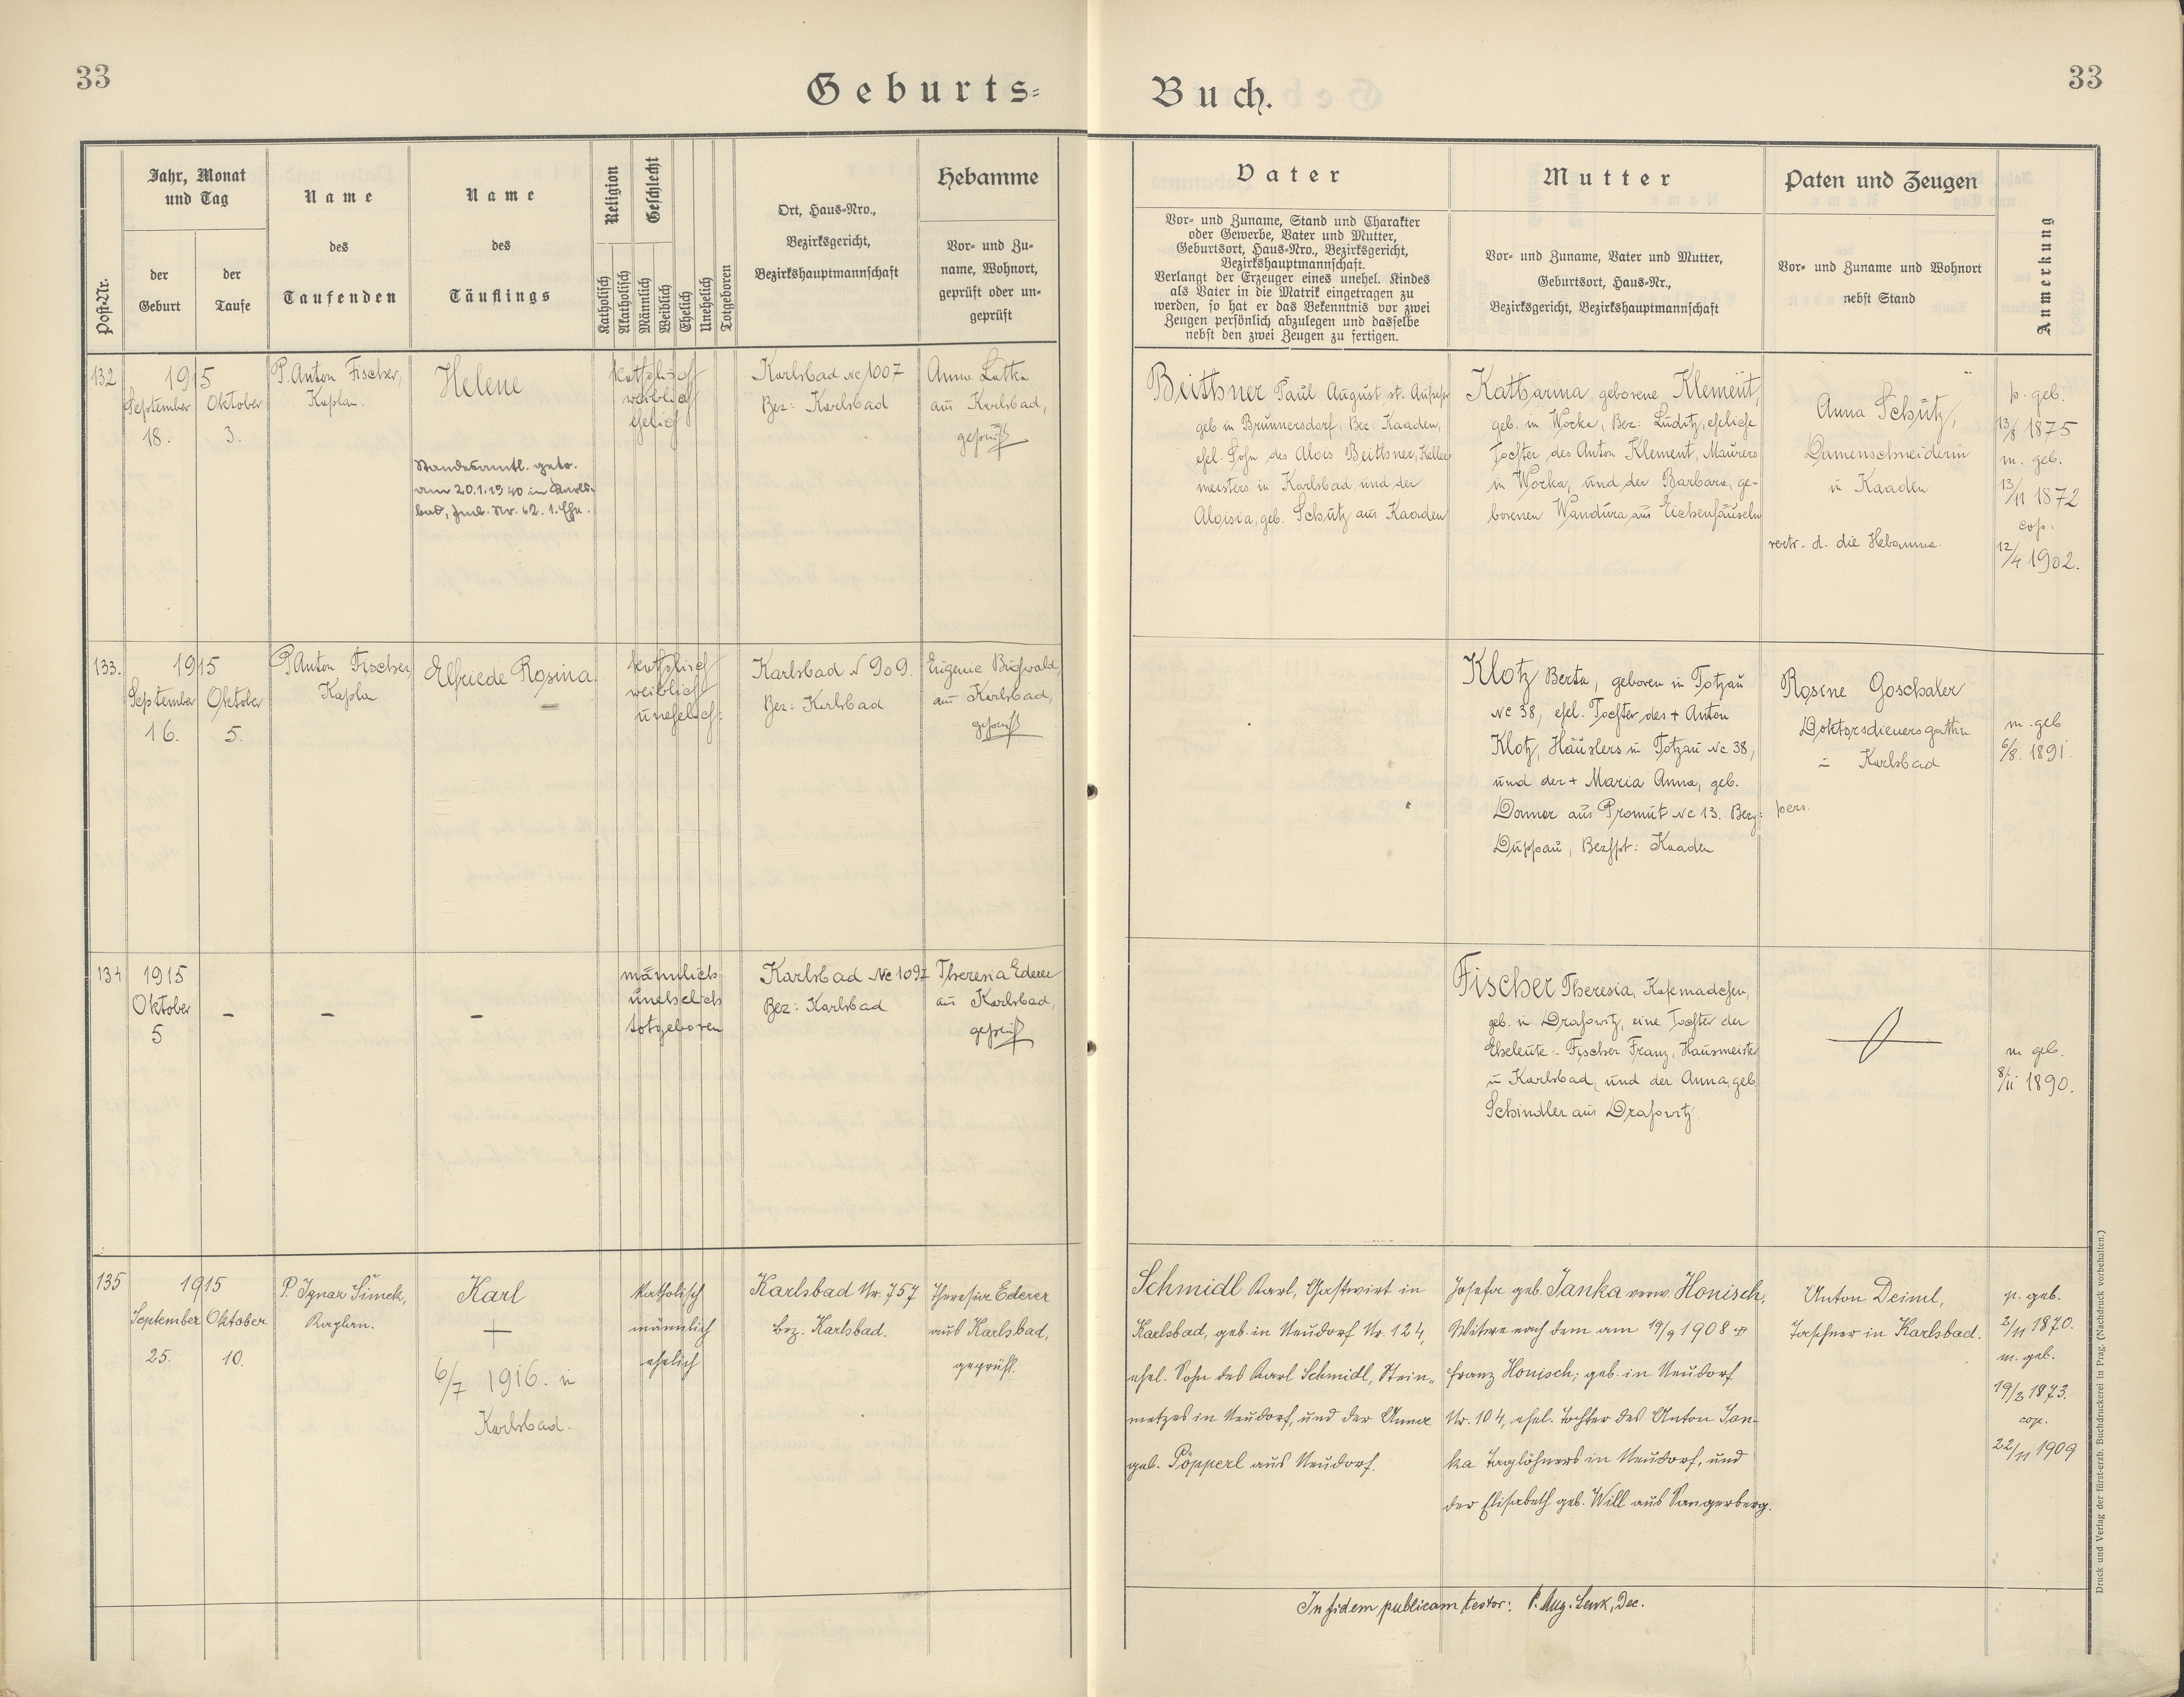 33
Geburts=
Buch.
33
Post-Nr.
Jahr, Monat
und Tag
der
Geburt
der
Taufe
Name
des
Taufenden
Name
des
Täuflings
Religion
Katholisch
Akatholisch
Geschlecht
Männlich
Weiblich
Ehelich
Unehelich
Totgeboren
Ort, Haus-Nro.,
Bezirksgericht,
Bezirkshauptmannschaft
Hebamme
Vor- und Zu-
name, Wohnort,
geprüft oder un-
geprüft
Vater
Vor- und Zuname, Stand und Charakter
oder Gewerbe, Vater und Mutter,
Geburtsort, Haus-Nro., Bezirksgericht,
Bezirkshauptmannschaft.
Verlangt der Erzeuger eines unehel. Kindes
als Vater in die Matrik eingetragen zu
werden, so hat er das Bekenntnis vor zwei
Zeugen persönlich abzulegen und dasselbe
nebst den zwei Zeugen zu fertigen.
Mutter
Vor- und Zuname, Vater und Mutter,
Geburtsort, Haus-Nr.,
Bezirksgericht, Bezirkshauptmannschaft
Paten und Zeugen
Vor- und Zuname und Wohnort
nebst Stand
Anmerkung
132
1915
September
18.
Oktober
3.
P. Anton Fischer,
Kaplan.
Helene
Standesamtl. getr.
am 20.1.1940 in Karls-
bad, Nr. 62. 1. Ehe.
katholisch
weiblich
ehelich
Karlsbad Nc 1007
Bez: Karlsbad
Anna
aus Karlsbad,
geprüft
Beithner Paul August, st. Aufseher
geb in Brunnersdorf, Bez: Kaaden,
ehel. Sohn des Alois Beithner, Keller
meisters in Karlsbad, und der
Aloisia, geb. Schütz aus Kaaden
Katharina geborene Klement,
geb. in Worka, Bez: Luditz, eheliche
Tochter des Anton Klement, Maurers
in Worka, und der Barbara, ge-
borenen Wandura aus Eichenhäuseln
Anna Schütz,
Damenschneiderin
in Kaaden
vertr. d. die Hebamme
p. geb.
13/8 1875
m. geb.
13/11 1872
cop.
12/4 1902.
133.
1915
September
16.
Oktober
5.
P. Anton Fischer,
Kaplan
Elfriede Rosina
katholisch
weiblich
unehelich
Karlsbad N 909.
Bez: Karlsbad
Eugenie
aus Karlsbad,
geprüft
Klotz Berta, geboren in Totzau
Nc 38, ehel. Tochter des + Anton
Klotz, Häuslers in Totzau Nc 38,
und der + Maria Anna, geb.
Donner aus Promut Nc 13. Bez:
Duppau, Bezhpt: Kaaden
Rosine Goschaler
Doktorsdienersgattin
in Karlsbad
pers.
m. geb
6/8. 1891.
134
1915
Oktober
5
–
–
–
männlich
unehelich
totgeboren
Karlsbad Nc 1097
Bez: Karlsbad
Theresia Ederer
aus Karlsbad,
geprüft
Fischer Theresia,
geb. in Drahowitz, eine Tochter der
Eheleute:- Fischer Franz, Hausmeister
in Karlsbad, und der Anna, geb
Schindler aus Drahowitz.
m geb.
8/11 1890.
135
1915
September
25.
Oktober
10.
P. Ignaz Šimek,
Kaplan.
Karl
+
6/7 1916. in
Karlsbad.
Katholisch
männlich
ehelich
Karlsbad Nr. 757
bez. Karlsbad.
Theresia Ederer
aus Karlsbad,
geprüft.
Schmidl Karl, Gastwirt in
Karlsbad, geb. in Neudorf Nr. 124,
ehel. Sohn des Karl Schmidl, Stein-
metzes in Neudorf, und der Anna
geb. Pöpperl aus Neudorf.
Josefa geb. Janka verw. Honisch,
Witwe nach dem am 19/9 1908 +
Franz Honisch; geb. in Neudorf
Nr. 104, ehel. Tochter des Anton Jan-
ka Taglöhners in Neudorf, und
der Elisabeth geb. Will aus Sangerberg.
Anton Deiml,
Taschner in Karlsbad.
p. geb.
2/11 1870.
m. geb.
19/3 1873.
cop.
22/11 1909
In fidem publicam testor: P. Aug. Lenk, Dec.
Druck und Verlag der fürst-erzb. Buchdruckerei in Prag. (Nachdruck vorbehalten.)